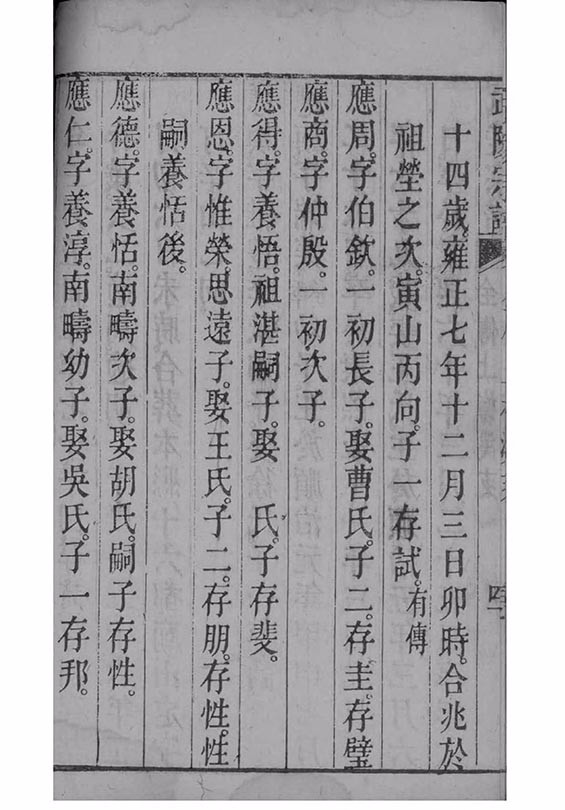 武陵宗譜
十四歲。雍正七年十二月三日卯時。合兆於
祖塋之次。寅山丙向。子一存試。有傳
應周。字伯欽。一初長子。娶曹氏。子二。存圭。存璧
應商。字仲殷。一初次子。
應得。字養悟。祖湛嗣子。娶　氏。子存斐。
應恩。字惟榮。思遠子。娶王氏。子二。存朋。存性。性
嗣養恬後。
應德。字養恬。南疇次子。娶胡氏。嗣子存性。
應仁。字養淳。南疇幼子。娶吳氏。子一存邦。